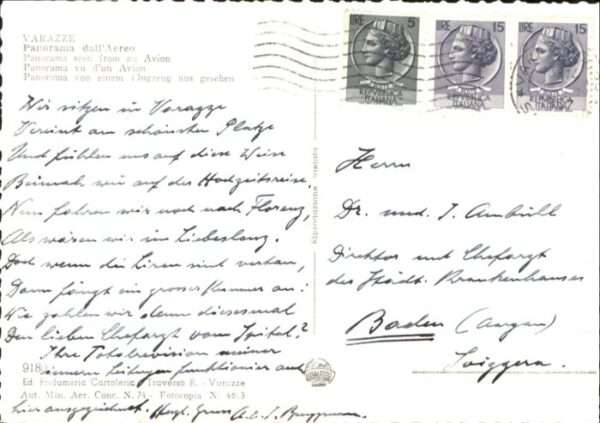 VARAZZE
Panorama dall'Aereo
Panorama seen from an Avion
Panorama vu d'un Avion
Panorama von einem Flugzeug aus gesehen
LIRE 5
LIRE 15
LIRE 15
Wir sitzen in Varazze
Vereint am schönsten Platze
Und fühlen uns auf diese Weise
Beinah wie auf der Hochzeitsreise.
Nun fahren wir noch nach Florenz,
Als wären wir im Liebeslenz.
Doch wenn die Liren sind vertan,
Dann fängt ein grosser Kummer an:
Wie zahlen wir denn diesesmal
Den lieben Chefarzt vom Spital?
Ihre Totalrevision meiner
inneren Leitungen funktioniert auch
hier ausgezeichnet. Herzl. Gruss
Herrn
Dr. med. J. Ambühl
Direktor und Chefarzt
des Städt. Krankenhauses
Baden (Aargau)
Svizzera.
Riproduzione vietata
918
Ed. Profumeria Cartoleria Traverso E. - Varazze
Aut. Min. Aer. Conc. N. 74 - Fotocopia N.